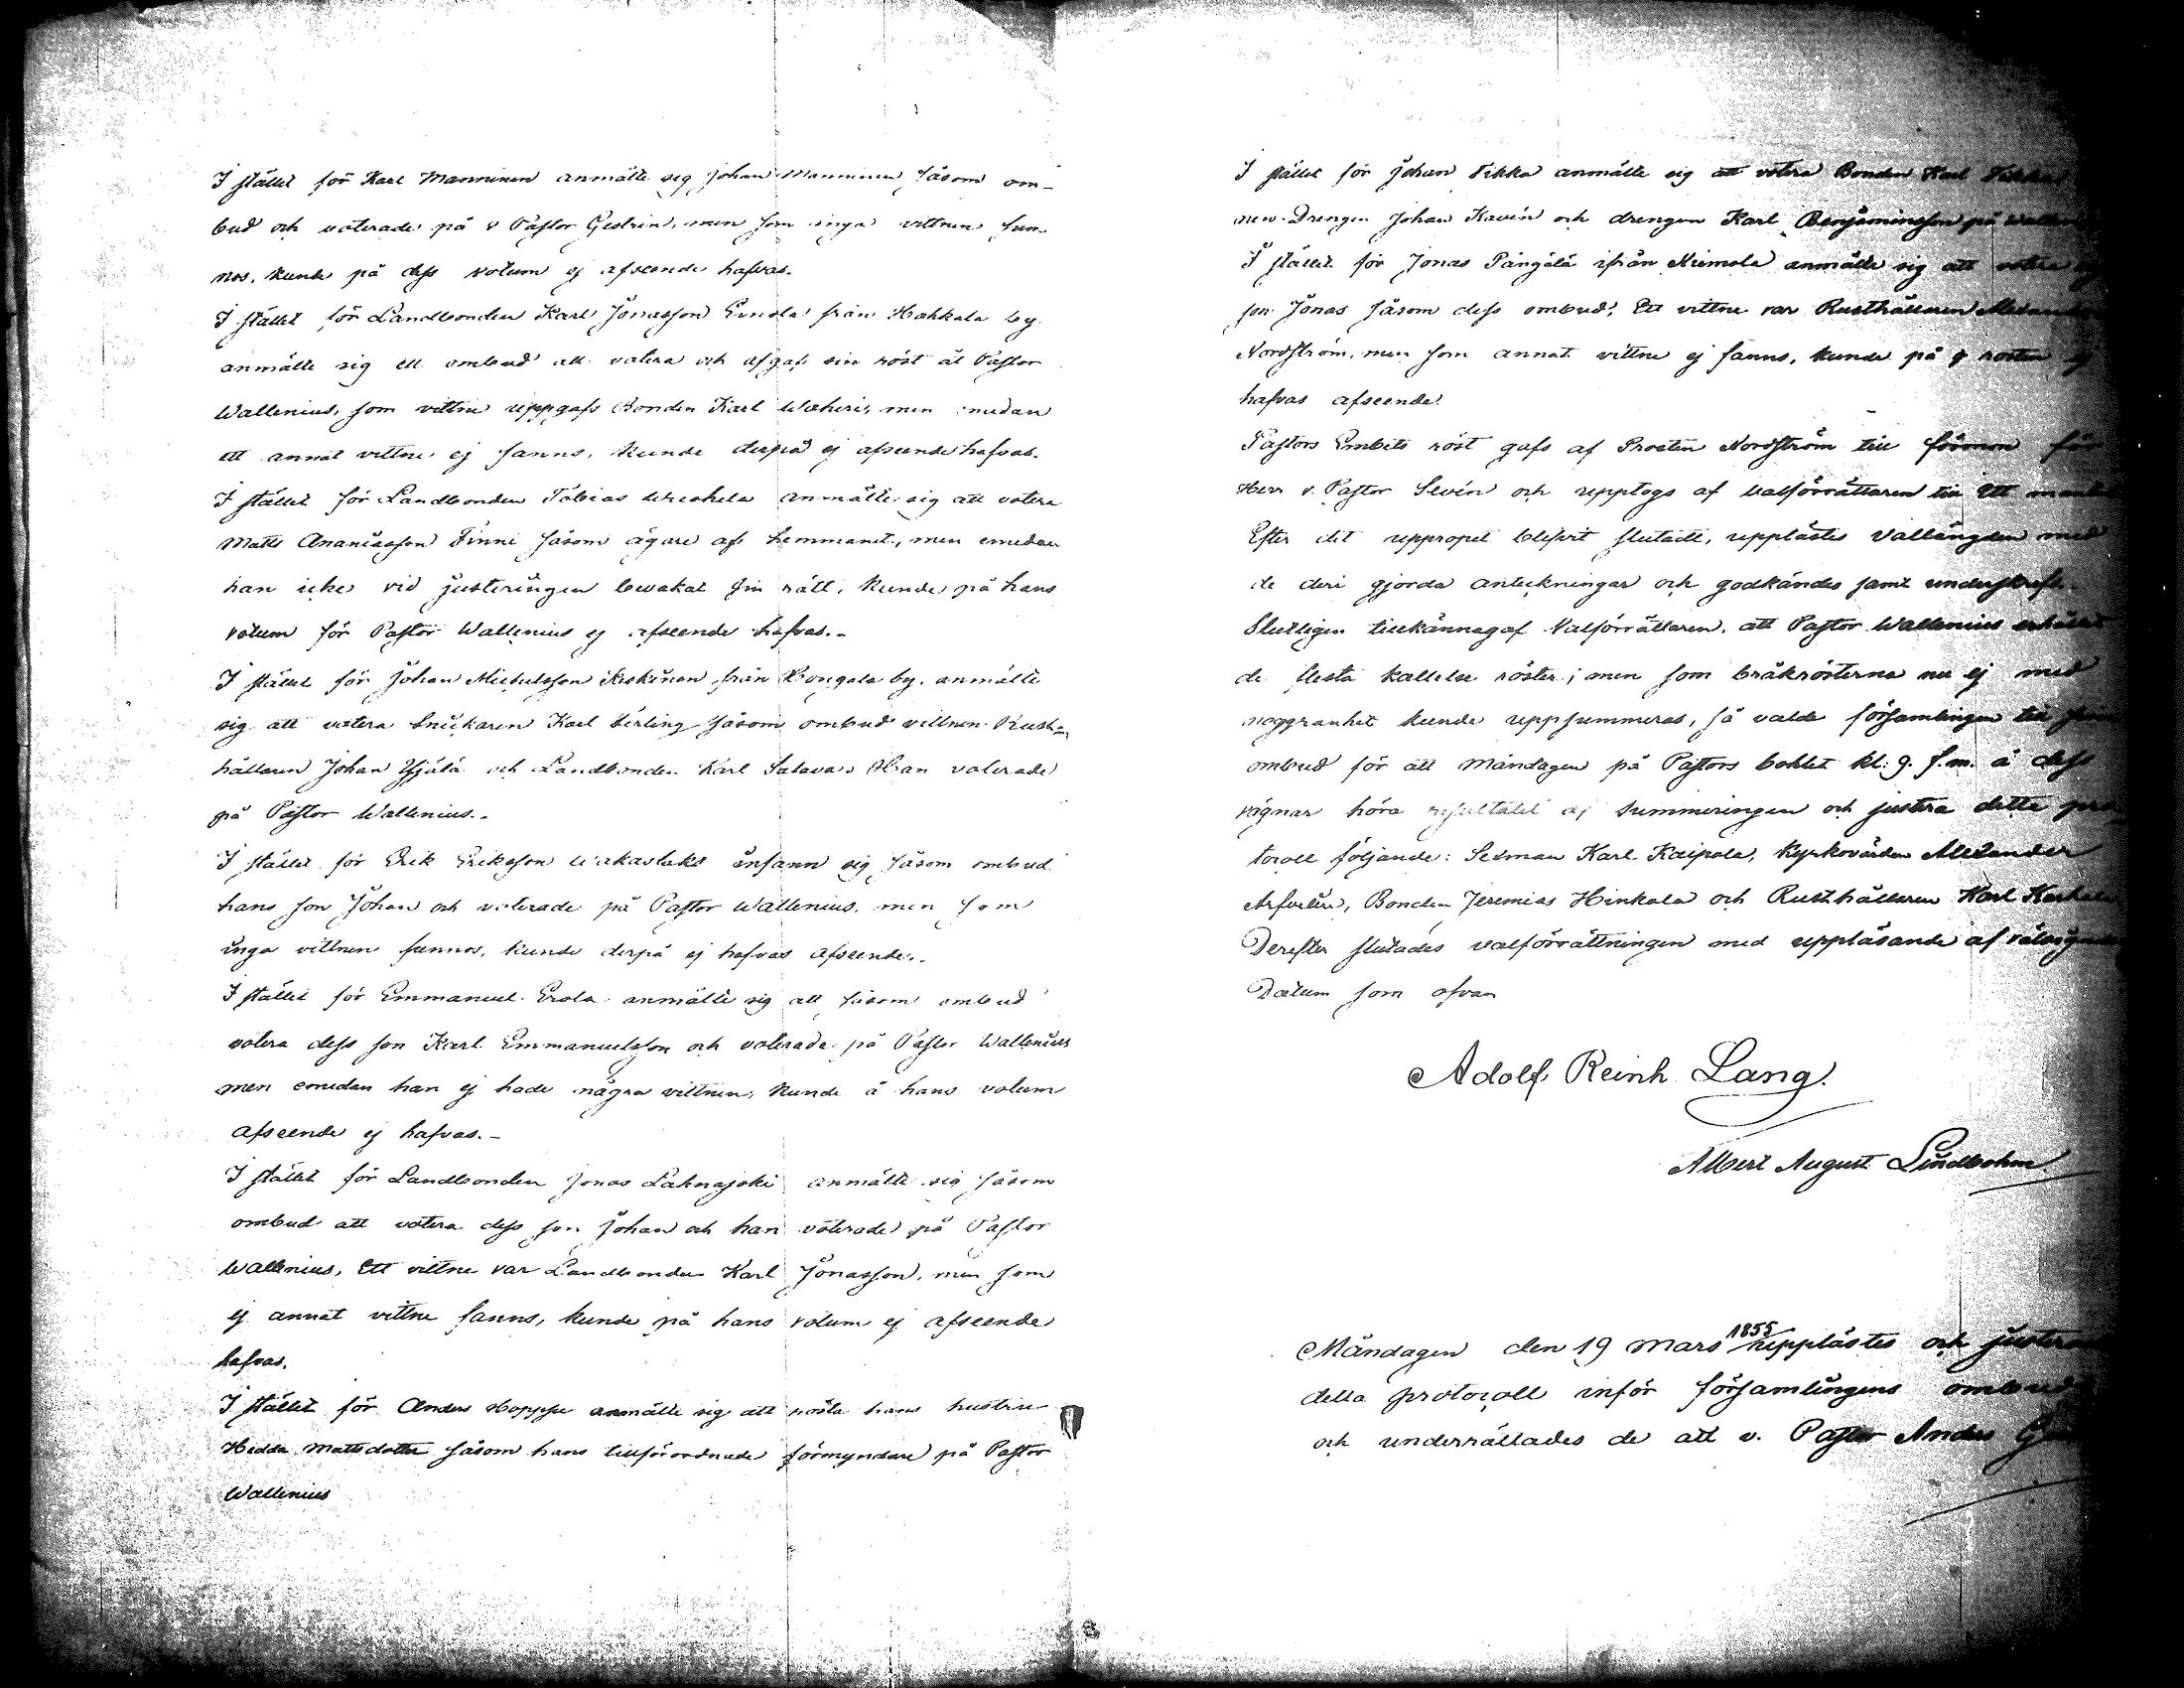 I stället för Karl Manninen anmälte sig Johan Manninen såsom om-
bud och voterade på v Pastor Gestrin, men som inga vittnen fun-
nos, kunde på dess votum ej afseende hafvas.
I stället för Landbonden Karl Jonasson från Hakkala by
anmälte sig ett ombud att votera och afgaf sin röst åt Pastor
Wallenius, som vittne uppgafs Bonden Karl men emedan
ett annat vittne ej fanns, kunde derpå ej afseende hafvas.
I stället för Landbonden Tobias anmälte sig att votera
Matts Ananiasson Finni såsom ägare af hemmanet, men emedan
han icke vid justeringen bevakat sin rätt, kunde på hans
votum för Pastor Wallenius ej afseende hafvas.-
I stället för Johan Michelsson Keskinen från Hongola by, anmälte
sig att votera Snickaren Karl Ferling såsom ombud vittnen Rust-
hållaren Johan och Landbonden Karl Salava. Han voterade
på Pastor Wallenius.-
I stället för Erik Eriksson infann sig såsom ombud
hans son Johan och voterade på Pastor Wallenius, men som
inga vittnen funnos, kunde derpå ej hafvas afseende.-
I stället för Emmanuel Erola anmälte sig att såsom ombud
votera dess son Karl Emmanuelsson och voterade på Pastor Wallenius
men emedan han ej hade några vittnen, kunde å hans votum
afseende ej hafvas.-
I stället för Landbonden Jonas Lahnajoki anmälte sig såsom
ombud att votera dess son Johan och han voterade på Pastor
Wallenius, Ett vittne var Landbonden Karl Jonasson, men som
ej annat vittne fanns, kunde på hans votum ej afseende
hafvas.
I stället för Anders Hoppu anmälte sig att rösta hans hustru
Hedda Mattsdotter såsom hans tillförordnade förmyndare på Pastor
Wallenius
I stället för Johan Tikka anmälte sig att votera Bonden Karl Tikka
Drengen Johan Kavén och drengen Karl Benjaminsson på
I stället för Jonas Pängälä ifrån Heimola anmälte sig att votera
son Jonas såsom dess ombud, Ett vittne var Rusthållaren
Nordström, men som annat vittne ej fanns, kunde på rösten ej
hafvas afseende.
Pastors Embets röst gafs af Prosten Nordström till förmon för
Herr v. Pastor Sevón och upptogs af valförrättaren till Ett
Efter det uppropet blefvit slutadt, upplästes Vallängden med
de deri gjorda anteckningar och godkändes samt underskrefs.
Slutligen tillkännagaf Valförrättaren, att Pastor Wallenius erhållit
de flesta kallelse röster; men som bråkrösterna nu ej med
noggranhet kunde uppsummeras, så valde församlingen till
ombud för att Måndagen på Pastors bohlet kl: 9. f.m. å dess
vägnar höra resultatet af summeringen och justera detta pro
tocoll följande: Sexman Karl Kaipola, Kyrkovärden Alexander
Bonden Jeremias Hinkala och Rusthållaren Karl
Derefter slutades valförrättningen med uppläsande af
Datum som ofvan
Adolf Reinh Lang.
Albert August Lindbohm
Måndagen den 19 Mars 1855 upplästes och
detta protocoll inför församlingens ombud
och underrättades de att v. Pastor Anders